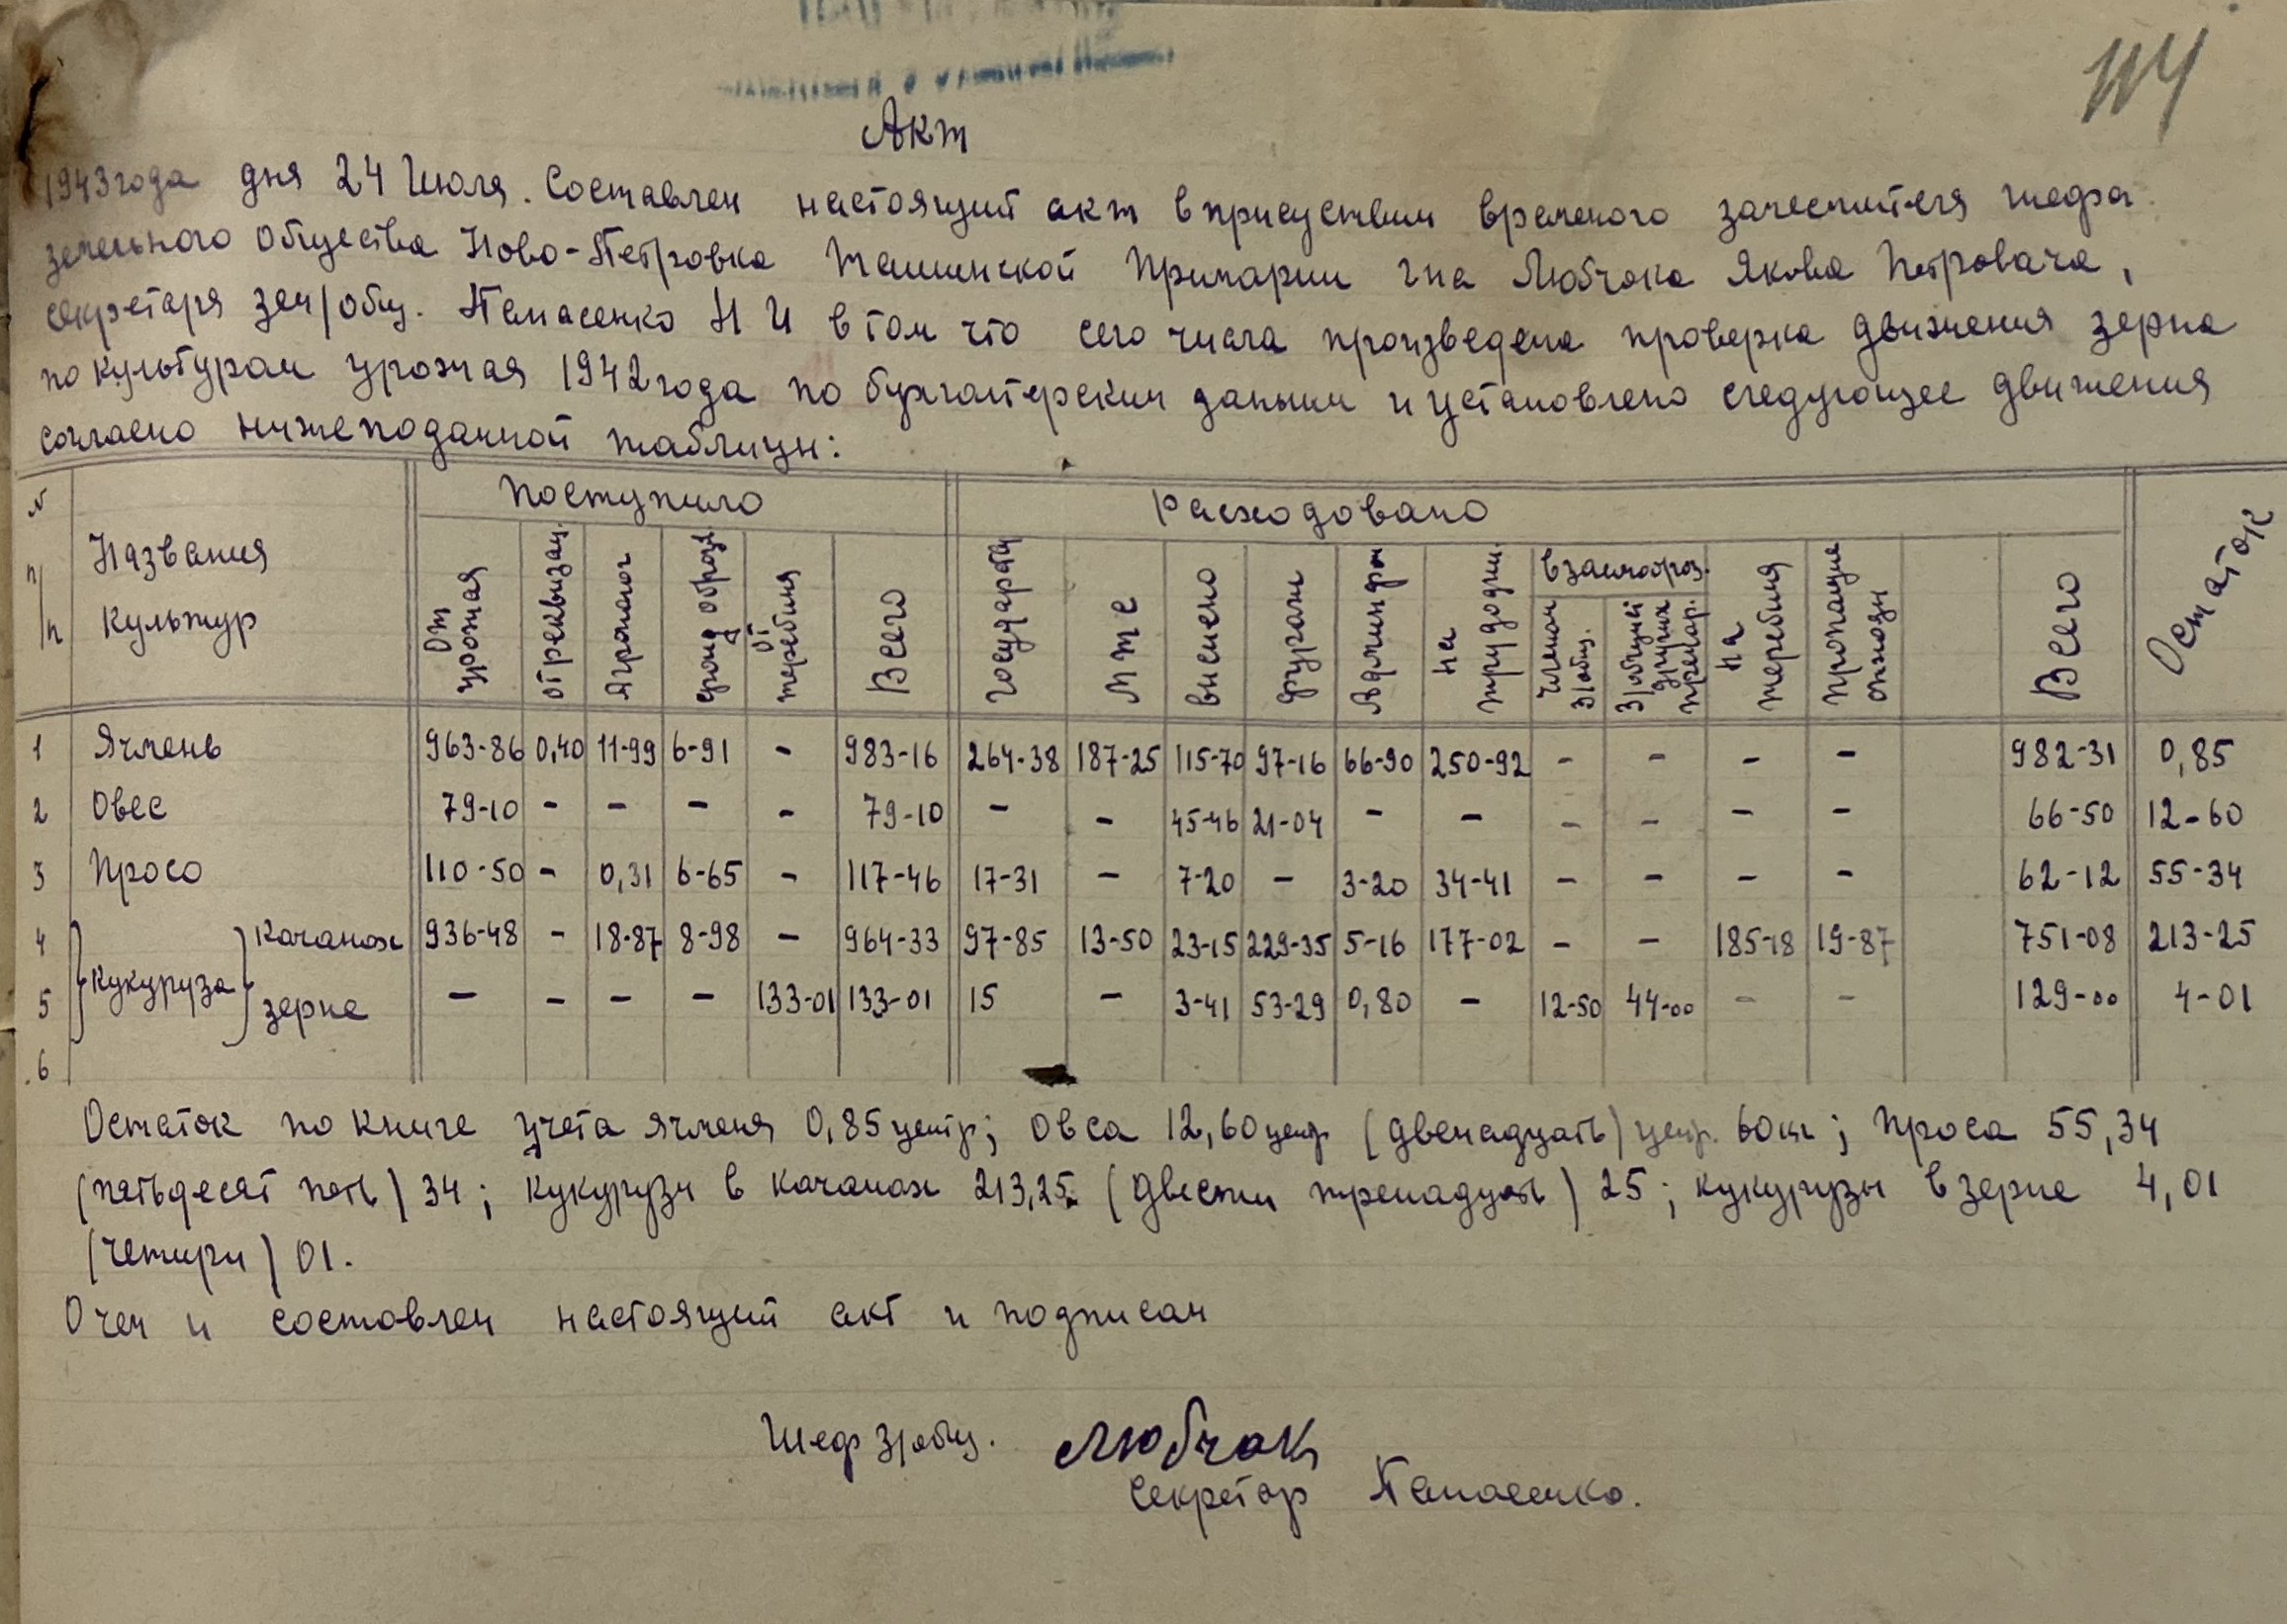 114
Акт
1943 года дня 24 Июля. Составлен настоящий акт в присуствии временого заместителя шефа
земельного общества Ново-Петровка Примарии г-на Любчака Якова Петровача,
секретаря зем/общ. Панасенко Н И в том что сего числа произведена проверка движения зерна
по культурам урожая 1942 года по бухгалтерским даным и установлено следующее движения
согласно нижеподанной таблицы:
N п/п Названия культур Поступило Расходовано Остаток
От урожая от реквизац. Агроном фонд образц от теребиня Всего государству М т с висиено другани Админ фон на трудодни. взаимообраз. на теребиня Пропанцие Всего
членам з/общ. з/общин других примар.
1 Ячмень 963-86 0,40 11-99 6-91 - 983-16 264-38 187-25 115-70 97-16 66-90 250-92 - - - - 982-31 0,85
2 Овес 79-10 - - - - 79-10 - - 45-46 21-04 - - - - - - 66-50 12-60
3 Просо 110-50 - 0,31 6-65 - 117-46 17-31 - 7-20 - 3-20 34-41 - - - - 62-12 55-34
4 Кукуруза качанах 936-48 - 18-87 8-98 - 964-33 97-85 13-50 23-15 229-35 5-16 177-02 - - 185-18 19-87 751-08 213-25
5 зерне - - - - 133-01 133-01 15 - 3-41 53-29 0,80 - 12-50 44-00 - - 129-00 4-01
6
Остаток по книге учета ячменя 0,85 центр; овса 12,60 центр (двенадцать) центр. 60 кг; проса 55,34
(пятьдесят пять) 34; кукурузы в качанах 213,25 (двести тренадцать) 25; кукурузы в зерне 4,01
(четири) 01.
О чем и составлен настоящий акт и подписан
Шеф з/общ. Любчак
Секретар Панасенко.